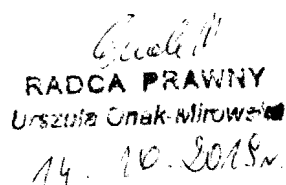 RADCA PRAWNY
Urszula Onak-Mirowska
14. 10. 2019r.